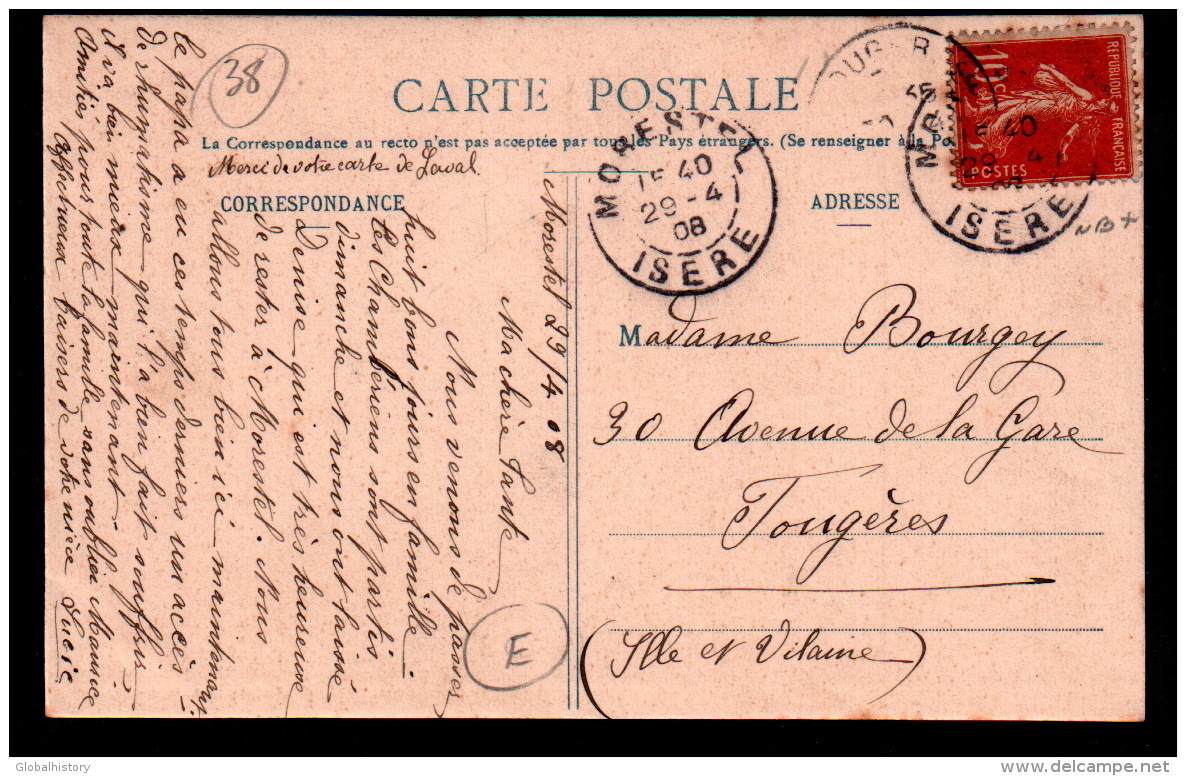 38
CARTE POSTALE
La Correspondance au recto n'est pas acceptée par tous les Pays étrangers. (Se renseigner à la Pos
Merci de votre carte de Laval
CORRESPONDANCE
ADRESSE
Morestel 29/4 08
Ma chère tante
Nous venons de passer
huit bons jours en famille.
Les Chamberieus sont partis
dimanche et nous ont laissé
Denise qui est très heureuse
de rester à Morestel. Nous
allons tous bien ici maintenant,
le papa a eu ces temps derniers un accès
de rhumatisme qui l'a bien fait souffrir
il va bien mieux maintenant.
Amitiés pour toute la famille sans oublier Maurice
Affectueux baisers de votre nièce Lucie
MORESTEL
15 40
29 - 4
08
ISÈRE
OUGÈR
MOR
40
29 4
ISÈRE
REPUBLIQUE FRANÇAISE
10c
POSTES
NB+
Madame Bourgey
30 Avenue de la Gare
Fougères
(Ille et Vilaine)
E
Globalhistory
delcampe.net